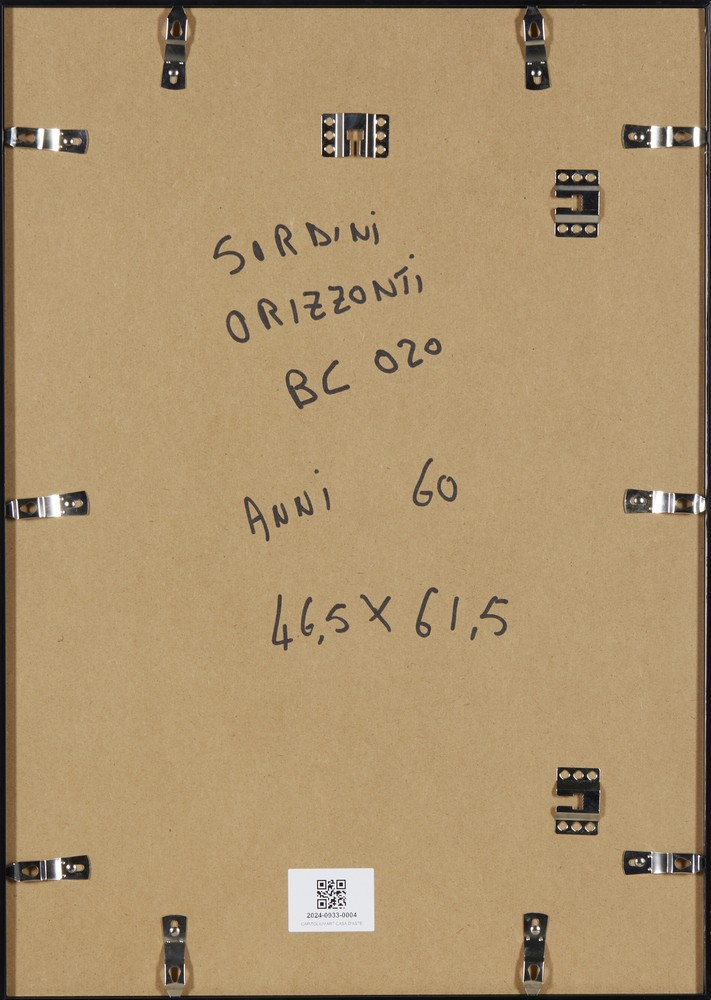 SORDINI
ORIZZONTI
BC 020
ANNI 60
46,5 X 61,5
2024-0933-0004